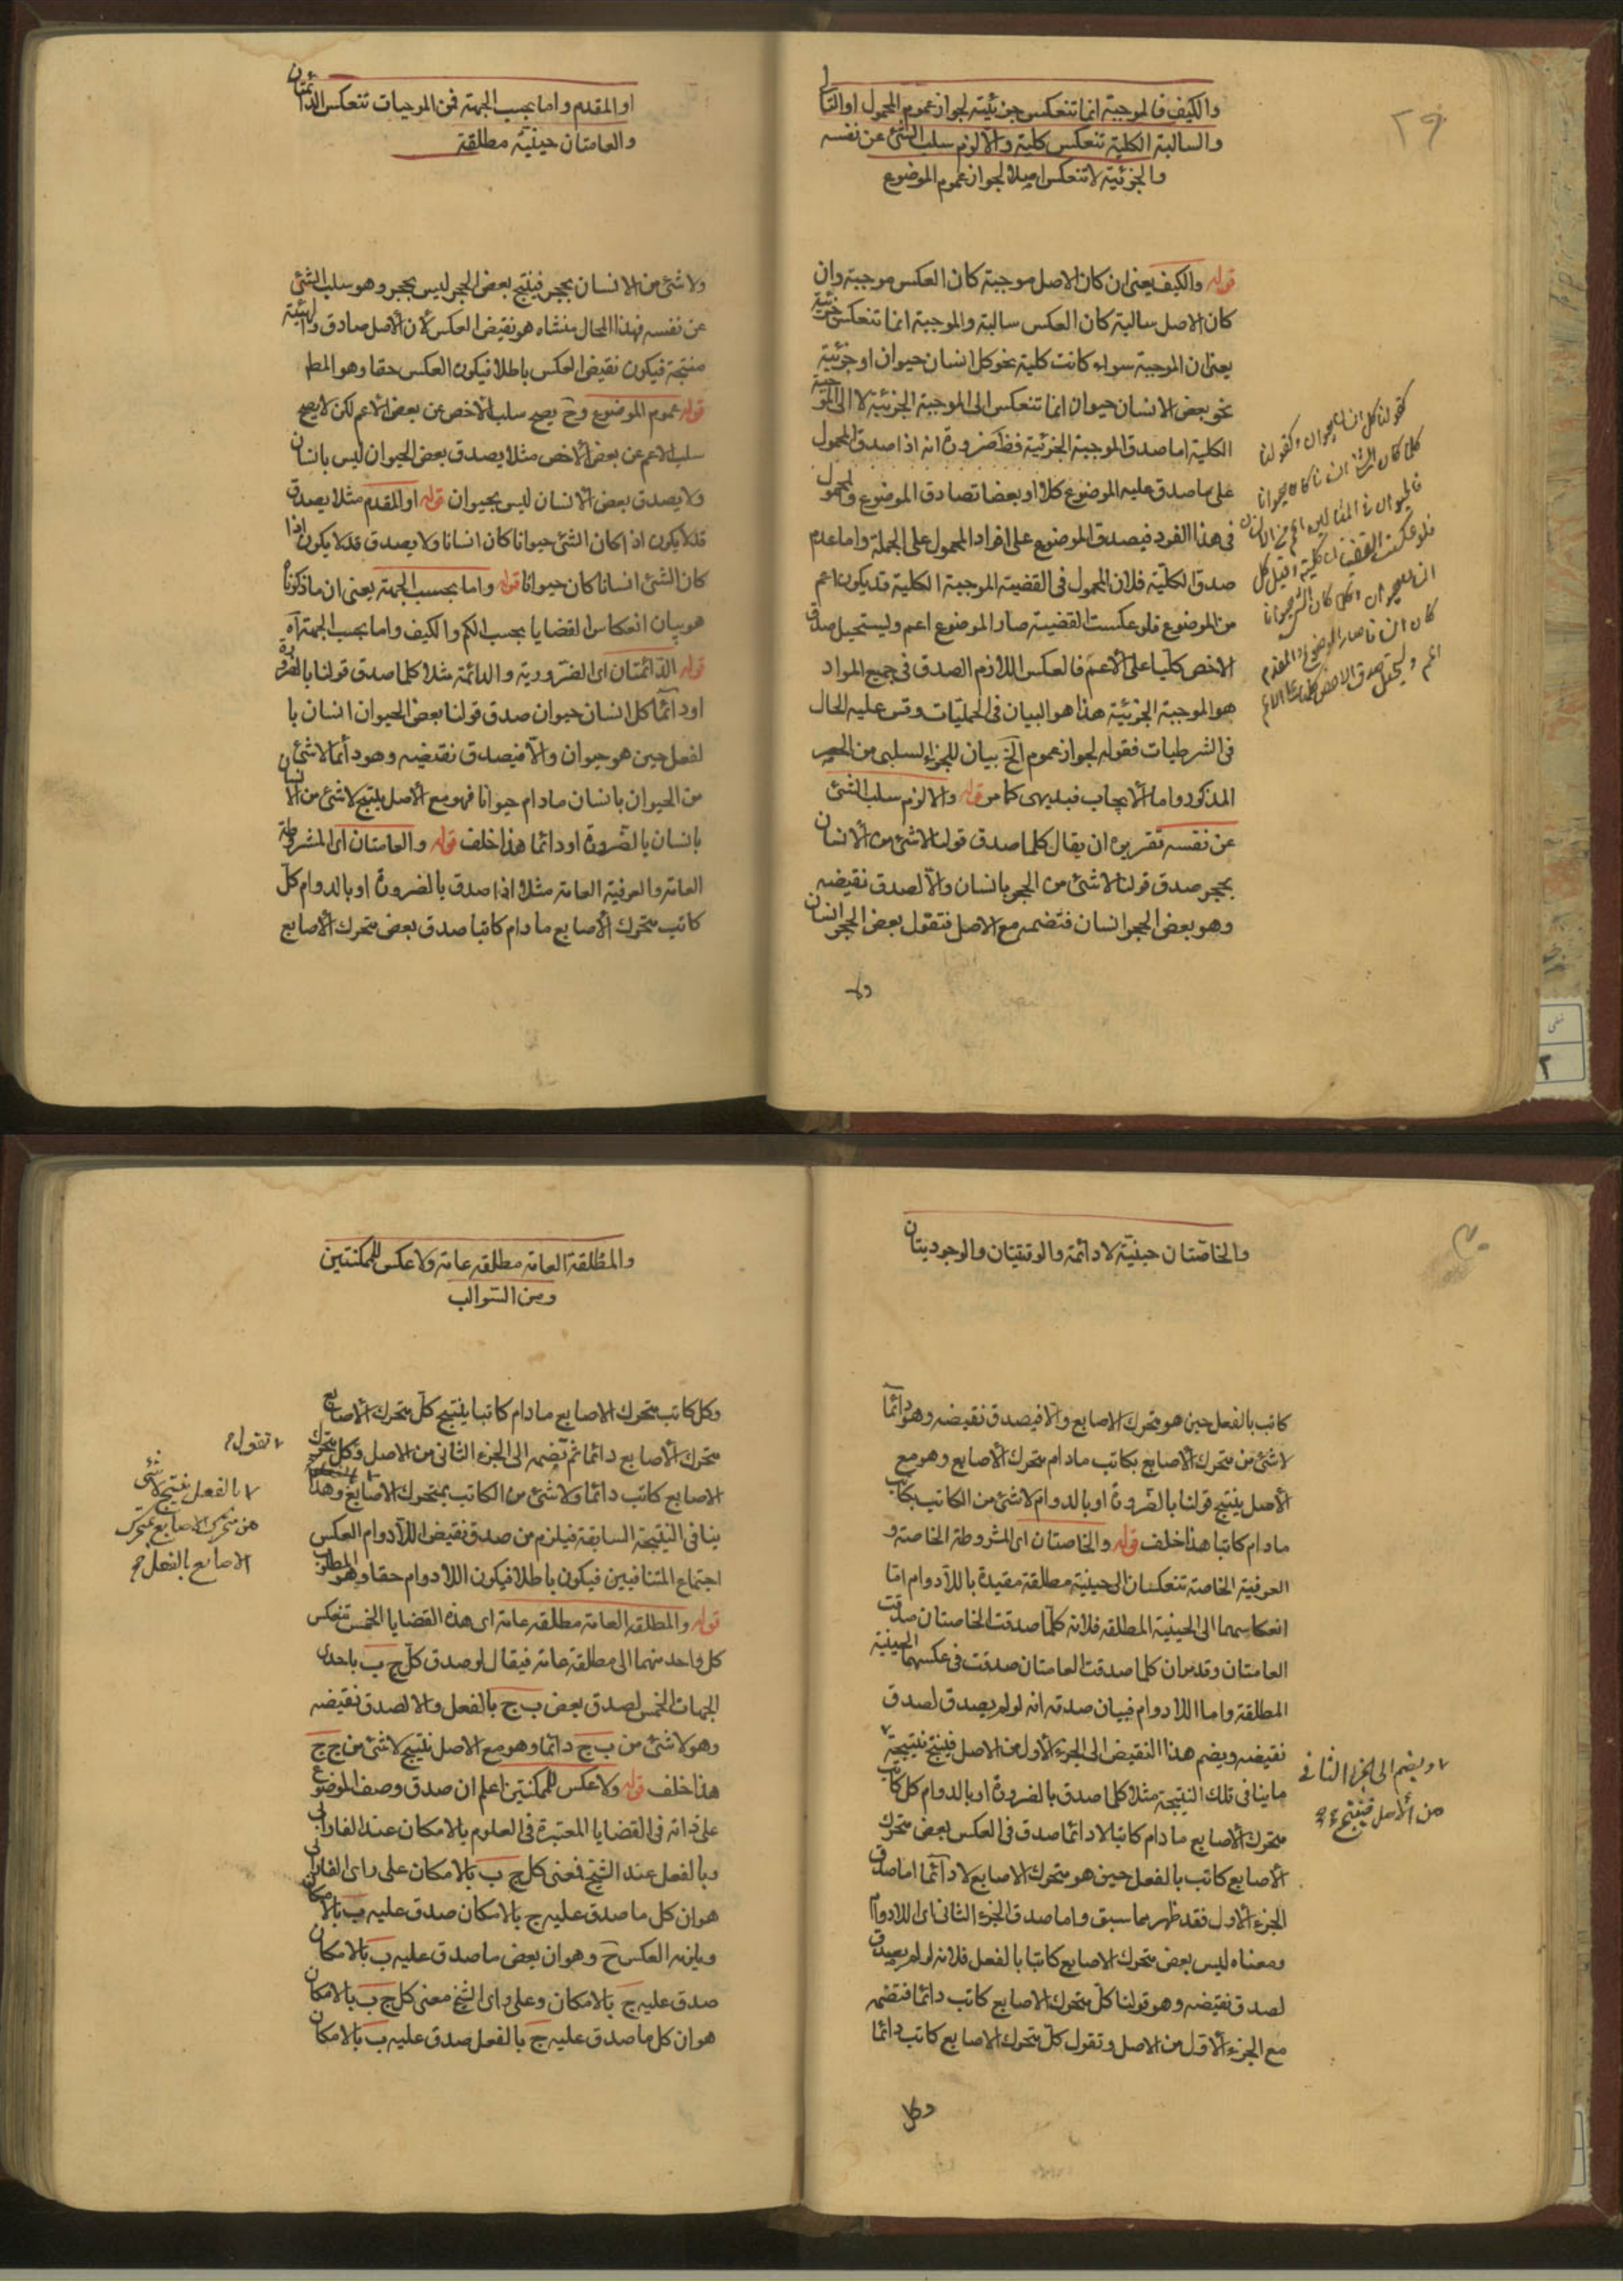 ٢٩
والكيف فالموجبة انما تنعكس جزئية لجواز عموم المحمول او التالى
والسالبة الكلية تنعكس كلية والا لزم سلب الشئ عن نفسه
والجزئية لا تنعكس اصلا لجواز عموم الموضوع
قوله والكيف يعنى ان كان الاصل موجبة كان العكس موجبة وان
كان الاصل سالبة كان العكس سالبة والموجبة انما تنعكس جزئية
يعنى ان الموجبة سواء كانت كلية نحو كل انسان حيوان او جزئية
نحو بعض الانسان حيوان انما تنعكس الى الموجبة الجزئية لا الى الموجبة
الكلية اما صدق الموجبة الجزئية فظ ضرورة انه اذا صدق المحمول
على ما صدق عليه الموضوع كلا او بعضا تصادق الموضوع والمحمول
فى هذا الفرد فيصدق الموضوع على افراد المحمول على الجملة واما عدم
صدق الكلية فلان المحمول فى القضية الموجبة الكلية قد يكون اعم
من الموضوع فلو عكست القضية صار الموضوع اعم وليستحيل صدق
الاخص كليا على الاعم فالعكس اللازم الصدق فى جميع المواد
هو الموجبة الجزئية هذا هو البيان فى الحمليات وقس عليه الحال
فى الشرطيات فقوله لجواز عموم الخ بيان للجزء السلبى من الحصر
المذكور واما الايجاب فبديهى كما مر قوله والا لزم سلب الشئ
عن نفسه تقريره ان يقال كلما صدق قولنا لاشئ من الانسان
بحجر صدق قولنا لاشئ من الحجر بانسان والا لصدق نقيضه
وهو بعض الحجر انسان فتضمه مع الاصل فتقول بعض الحجر انسان
ولا
كقولنا كل انسان حيوان وكقولنا
كلما كان الشئ انسانا كان حيوانا
فالحيوان فى المثالين اعم من الانسان
فلو عكست القضيتان كلية وقيل كل
حيوان انسان وكلما كان الشئ حيوانا
كان انسانا صار الموضوع والمقدم
اعم وليستحيل صدق الاخص كليا على الاعم
او المقدم واما بحسب الجهة فمن الموجبات تنعكس الدائمتان
والعامتان حينية مطلقة
ولا شئ من الانسان بحجر فينتج بعض الحجر ليس بحجر وهو سلب الشئ
عن نفسه فهذا المحال منشاه هو نقيض العكس لان الاصل صادق والهيئة
منتجة فيكون نقيض العكس باطلا فيكون العكس حقا وهو المط
قوله عموم الموضوع وح يصح سلب الاخص عن بعض الاعم لكن لا يصح
سلب الاعم عن بعض الاخص مثلا يصدق بعض الحيوان ليس بانسان
ولا يصدق بعض الانسان ليس بحيوان قوله او المقدم مثلا يصدق
قد لا يكون اذا كان الشئ حيوانا كان انسانا ولا يصدق قد لا يكون اذا
كان الشئ انسانا كان حيوانا قوله واما بحسب الجهة يعنى ان ما ذكرناه
هو بيان انعكاس القضايا بحسب الكم والكيف واما بحسب الجهة آه
قوله الدائمتان اى الضرورية والدائمة مثلا كلما صدق قولنا بالضرورة
او دائما كل انسان حيوان صدق قولنا بعض الحيوان انسان با
لفعل حين هو حيوان والا فيصدق نقيضه وهو دائما لا شئ
من الحيوان بانسان مادام حيوانا فهو مع الاصل ينتج لا شئ من الانسان
بانسان بالضرورة او دائما هذا خلف قوله والعامتان اى المشروطة
العامة والعرفية العامة مثلا اذا صدق بالضرورة او بالدوام كل
كاتب متحرك الاصابع مادام كاتبا صدق بعض متحرك الاصابع
٣٠
والخاصتان حينية لا دائمة والوقتيتان والوجوديتان
كاتب بالفعل حين هو متحرك الاصابع والا فيصدق نقيضه وهو دائما
لا شئ من متحرك الاصابع بكاتب مادام متحرك الاصابع وهو مع
الاصل ينتج قولنا بالضرورة او بالدوام لا شئ من الكاتب بكاتب
مادام كاتبا هذا خلف قوله والخاصتان اى المشروطة الخاصة و
العرفية الخاصة تنعكسان الى حينية مطلقة مقيدة باللادوام اما
انعكاسهما الى الحينية المطلقة فلانه كلما صدقت الخاصتان صدقت
العامتان وقد مر ان كلما صدقت العامتان صدقت فى عكسهما الحينية
المطلقة واما اللادوام فبيان صدقه انه لو لم يصدق لصدق
نقيضه ويضم هذا النقيض الى الجزء الاول من الاصل فينتج نتيجة
ما ينافى تلك النتيجة مثلا كلما صدق بالضرورة او بالدوام كل كاتب
متحرك الاصابع مادام كاتبا لا دائما صدق فى العكس بعض متحرك
الاصابع كاتب بالفعل حين هو متحرك الاصابع لا دائما اما صدق
الجزء الاول فقد ظهر مما سبق واما صدق الجزء الثانى اى اللادوام
ومعناه ليس بعض متحرك الاصابع كاتبا بالفعل فلانه لو لم يصدق
لصدق نقيضه وهو قولنا كل متحرك الاصابع كاتب دائما فتضمه
مع الجزء الاول من الاصل وتقول كل متحرك الاصابع كاتب دائما
وكل
ويضم الى الجزء الثانى
من الاصل فينتج
والمطلقة العامة مطلقة عامة ولا عكس للممكنتين
ومن السوالب
وكل كاتب متحرك الاصابع مادام كاتبا ينتج كل متحرك الاصابع
متحرك الاصابع دائما ثم تضمه الى الجزء الثانى من الاصل وكل متحرك
الاصابع كاتب دائما ولا شئ من الكاتب بمتحرك الاصابع وهذا
ينافى النتيجة السابقة فيلزم من صدق نقيض اللادوام العكس
اجتماع المتنافيين فيكون باطلا فيكون اللادوام حقا وهو المطلوب
قوله والمطلقة العامة مطلقة عامة اى هذه القضايا الخمس تنعكس
كل واحد منهما الى مطلقة عامة فيقال لو صدق كل ج ب باحدى
الجهات الخمس لصدق بعض ب ج بالفعل والا لصدق نقيضه
وهو لا شئ من ب ج دائما وهو مع الاصل ينتج لا شئ من ج ج
هذا خلف قوله ولا عكس للممكنتين اعلم ان صدق وصف الموضوع
على ذاته فى القضايا المعتبرة فى العلوم بالامكان عند الفارابى
وبالفعل عند الشيخ فمعنى كل ج ب بالامكان على راى الفارابى
هو ان كل ما صدق عليه ج بالامكان صدق عليه ب بالامكان
ويلزمه العكس ح وهو ان بعض ما صدق عليه ب بالامكان
صدق عليه ج بالامكان وعلى راى الشيخ معنى كل ج ب بالامكان
هو ان كل ما صدق عليه ج بالفعل صدق عليه ب بالامكان
تقول
بالفعل ينتج لا شئ
من متحرك الاصابع بمتحرك
الاصابع بالفعل